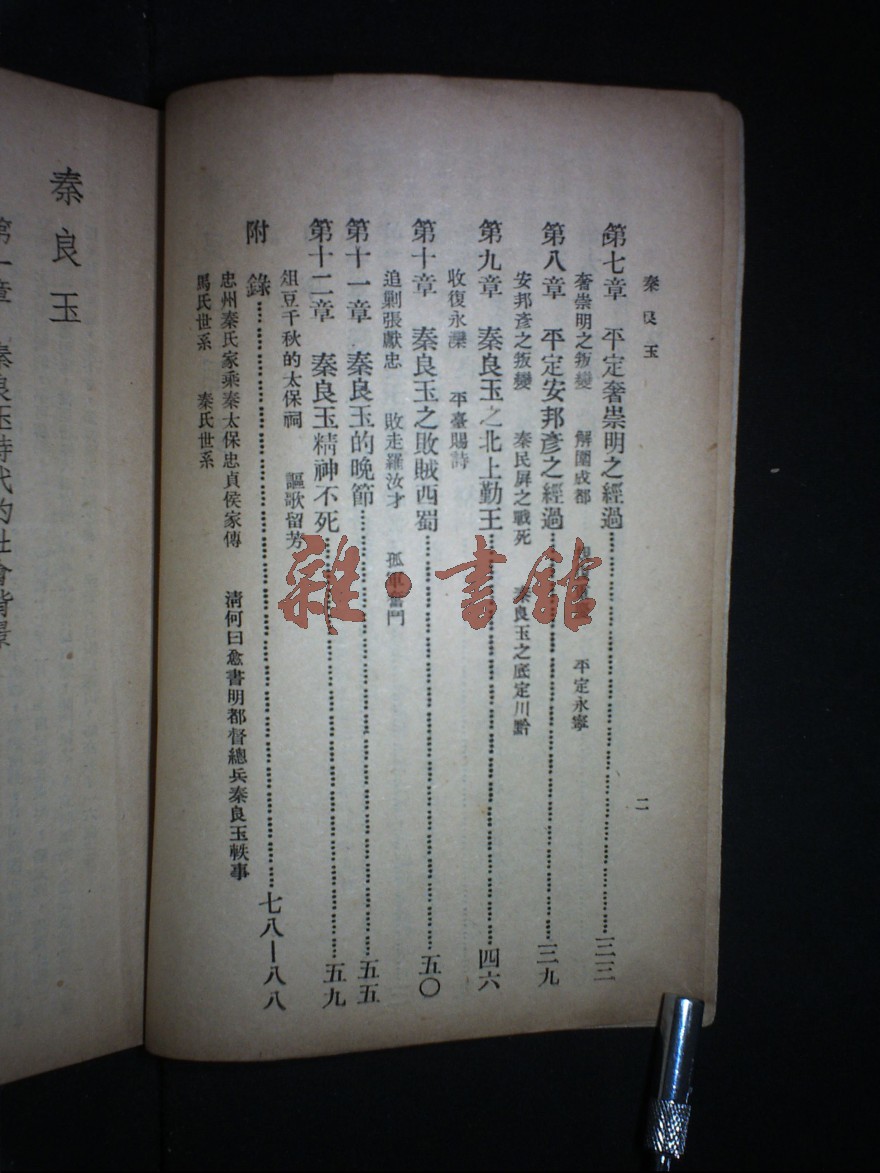 秦良玉
二
第七章 平定奢崇明之經過 三三
奢崇明之叛變 解圍成都 平定永寧
第八章 平定安邦彥之經過 三九
安邦彥之叛變 秦民屏之戰死 秦良玉之底定川黔
第九章 秦良玉之北上勤王 四六
收復永灤 平臺賜詩
第十章 秦良玉之敗賊西蜀 五〇
追剿張獻忠 敗走羅汝才 孤軍奮鬥
第十一章 秦良玉的晚節 五五
第十二章 秦良玉精神不死 五九
俎豆千秋的太保祠 謳歌留芳
附錄 七八—八八
忠州秦氏家乘秦太保忠貞侯家傳 清何曰愈書明都督總兵秦良玉軼事
馬氏世系 秦氏世系
秦良玉
第一章 秦良玉時代的社會背景
雜·書館